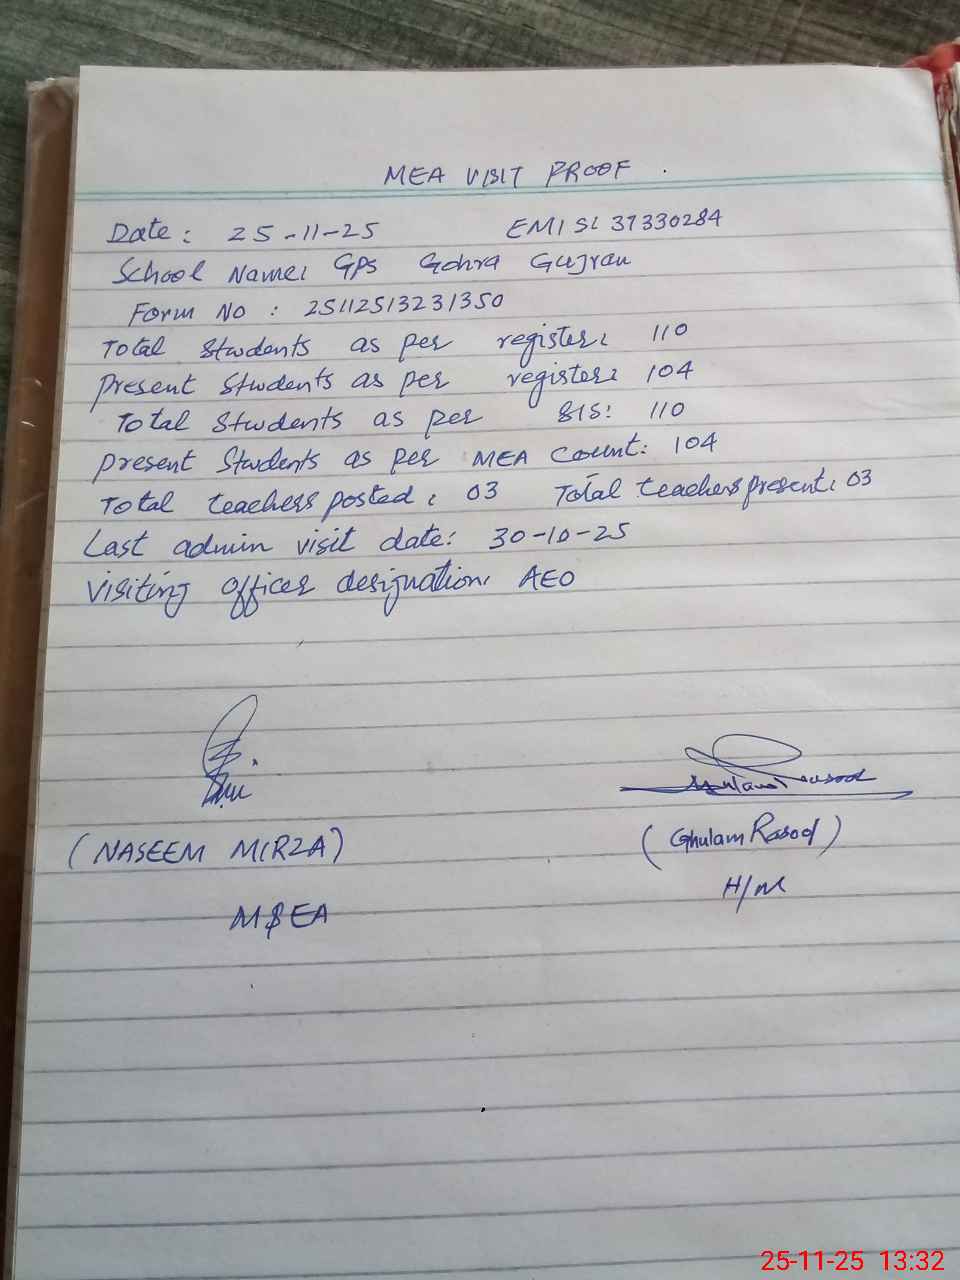 MEA VISIT PROOF
Date: 25-11-25 EMIS: 37330284
School Name: GPS Gohra Gujran
Form No : 25112513231350
Total Students as per register: 110
Present Students as per register: 104
Total Students as per SIS: 110
Present Students as per MEA Count: 104
Total teachers posted: 03 Total teachers present: 03
Last admin visit date: 30-10-25
Visiting officer designation: AEO
(NASEEM MIRZA) (Ghulam Rasool)
H/M
M&EA
25-11-25 13:32